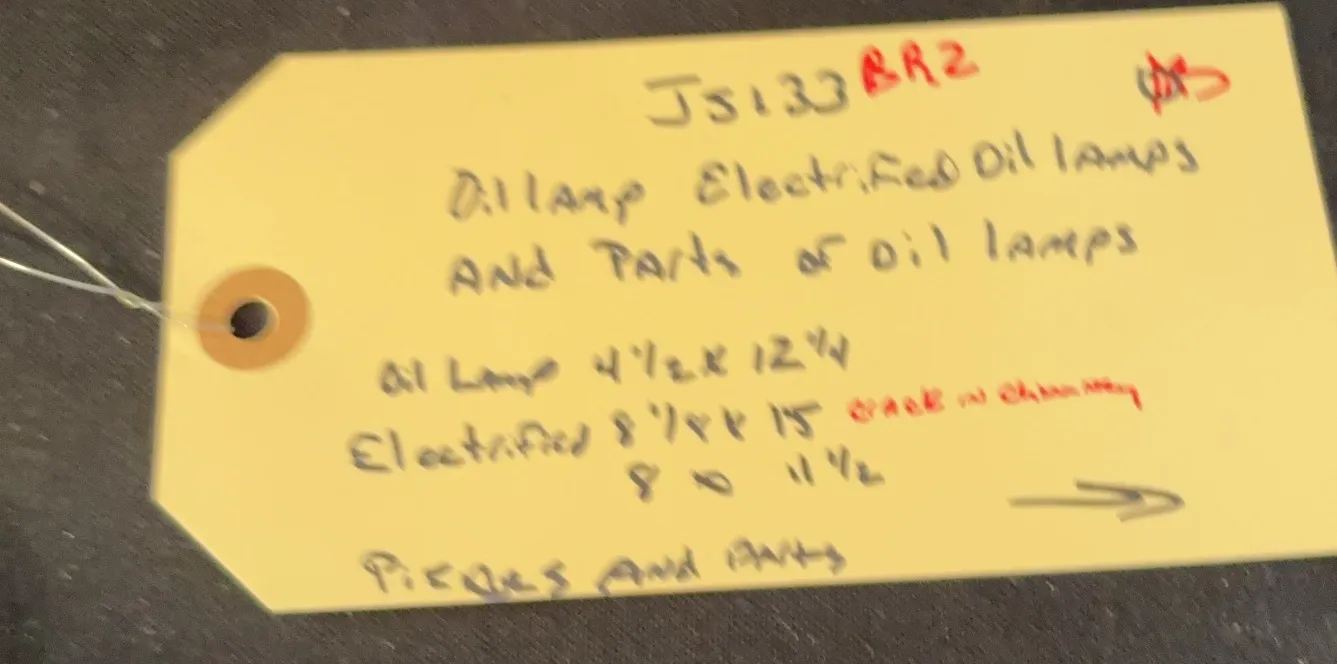 JS133 BR2
Oil lamp Electrified Oil lamps
And Parts of Oil lamps
Oil Lamp 4 1/2 x 12 1/4
Electrified 8 1/8 x 15 crack in chimney
8 x 11 1/2
Pieces And Parts